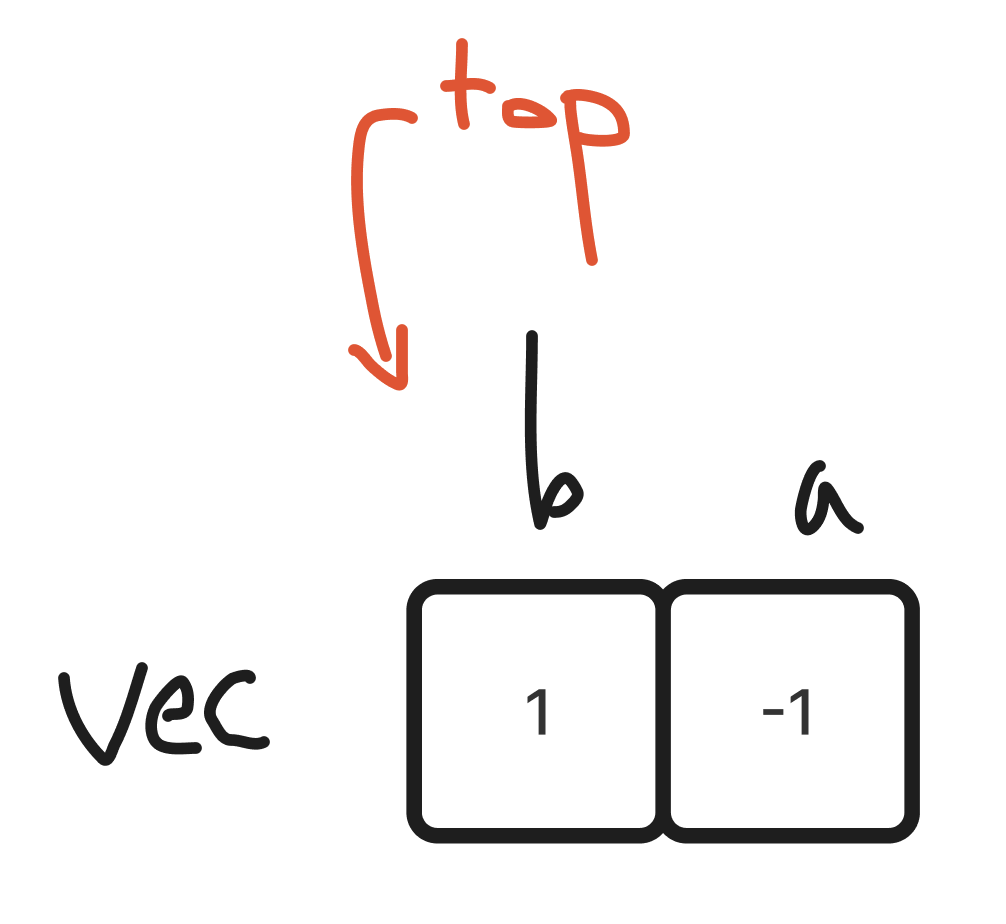 top
b a
vec 1 -1